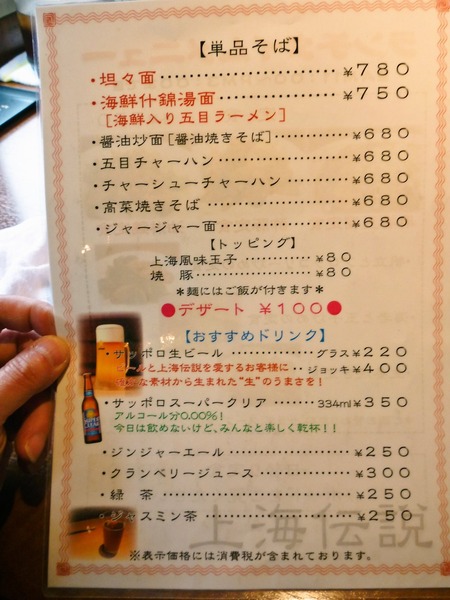 【単品そば】
・坦々面 ¥780
・海鮮什錦湯面 ¥750
[海鮮入り五目ラーメン]
・醤油炒面[醤油焼きそば] ¥680
・五目チャーハン ¥680
・チャーシューチャーハン ¥680
・高菜焼きそば ¥680
・ジャージャー面 ¥680
【トッピング】
上海風味玉子 ¥80
焼 豚 ¥80
*麺にはご飯が付きます*
●デザート ¥100●
【おすすめドリンク】
・サッポロ生ビール グラス¥220
ビールと上海伝説を愛するお客様に ジョッキ¥400
な素材から生まれた“生”のうまさを!
・サッポロスーパークリア 334ml¥350
アルコール分0.00%!
今日は飲めないけど、みんなと楽しく乾杯!!
・ジンジャーエール ¥250
・クランベリージュース ¥300
・緑 茶 ¥250
・ジャスミン茶 ¥250
上海伝説
※表示価格には消費税が含まれております。